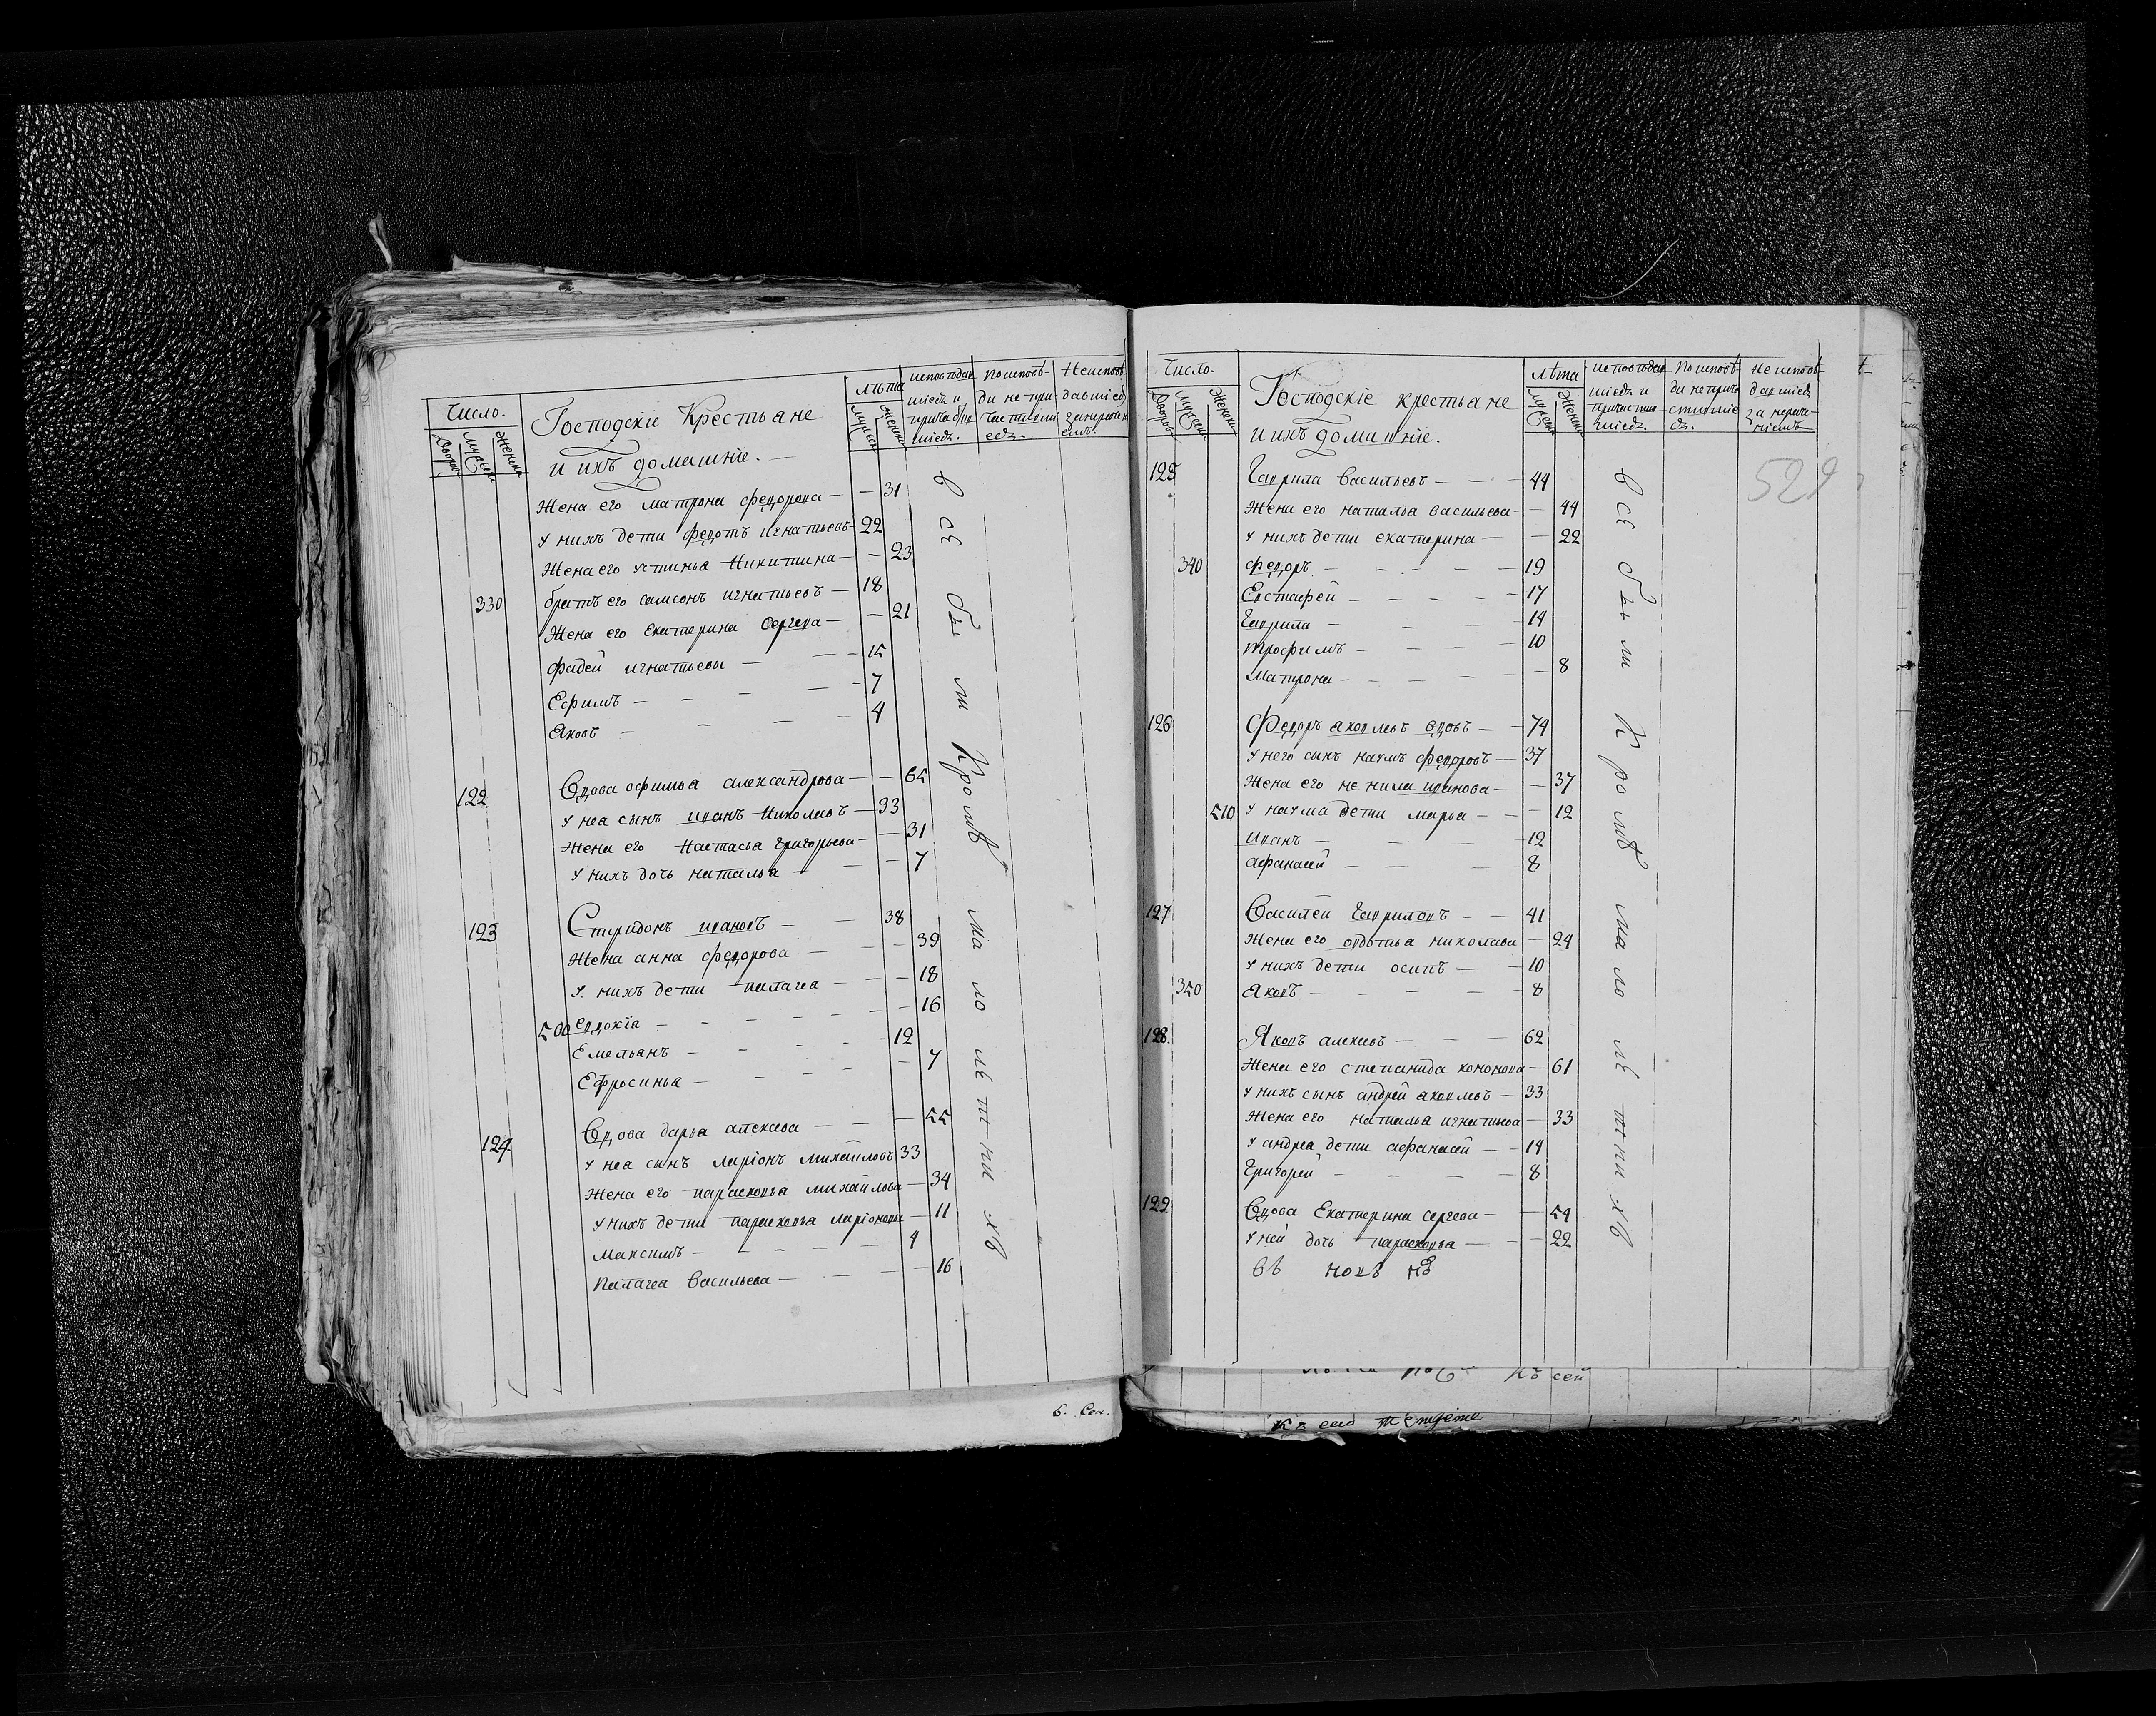 Число.
Дворовъ
Мужска
Женска
Господскіе Крестьане
и ихъ домашніе.
лѣта
Мужска
Женска
исповѣдав
шіеся и
причастив
шіеся.
По исповѣ-
ди не при
частивші
еся.
Неисповѣ
давшіеся
Жена его матрона федорова — — 31
У нихъ дети федотъ игнатьевъ — 22
Жена его устинья Никитина — — 23
330 братъ его самсонъ игнатьевъ — 18
Жена его екатерина Сергева — — 21
Фадей игнатьевы — — 15
Ефимъ — — — 7
Яковъ — — — 4
122 Вдова офимья александрова — — 65
У неа сынъ иванъ Николаевъ — 33
Жена его Настасья григорьева — — 31
У нихъ дочь наталья — — — 7
123 Спиридонъ ивановъ — — 38
Жена анна федорова — — 39
У нихъ дети пелагеа — — — 18
500 евдокіа — — — — 16
Емельанъ — — — — 12
Ефросинья — — — — 7
124 Вдова дарья алексева — — 55
У неа сынъ ларіонъ михайловъ 33
Жена его парасковья михайлова — 34
У нихъ дети парасковья ларіонова — 11
Максимъ — — — — 4
Палагеа Васильева — — — 16
всѣ были кромѣ малолѣтнихъ
6. Сен.
Число.
Дворовъ
Мужска
Женска
Господскіе крестьане
и ихъ домашніе.
Лѣта
Мужска
Женска
исповѣдав
шіеся и
причастив
шіеся.
По исповѣ-
ди не прича
стившіе
ся.
Не исповѣ
давшіеся
за нераче-
ніемъ
529
125 Гаврила Васильевъ — — 44
Жена его наталья васильева — — 44
У нихъ дети екатерина — — 22
340 федоръ — — — — 19
Евстафей — — — — 17
Гаврила — — — 14
Трофимъ — — — 10
Матрона — — — — 8
126 Федоръ аковлевъ вдовъ — 74
У него сынъ наумъ федоровъ — 37
Жена его ненила иванова — — 37
510 У наума дети марья — — 12
иванъ — — — 12
афанасей — — — 8
127 Василей Гавриловъ — — 41
Жена его авдотья николаева — 24
У нихъ дети осипъ — — 10
350 Яковъ — — — — 8
128. Яковъ алексевъ — — — 62
Жена его степанида кононова — 61
У нихъ сынъ андрей аковлевъ — 33
Жена его наталья игнатьева — 33
У андреа дети афанасей — — 14
Григорей — — — 8
129 Вдова Екатерина сергева — — 54
У ней дочь парасковья — — 22
всѣ были кромѣ малолѣтнихъ